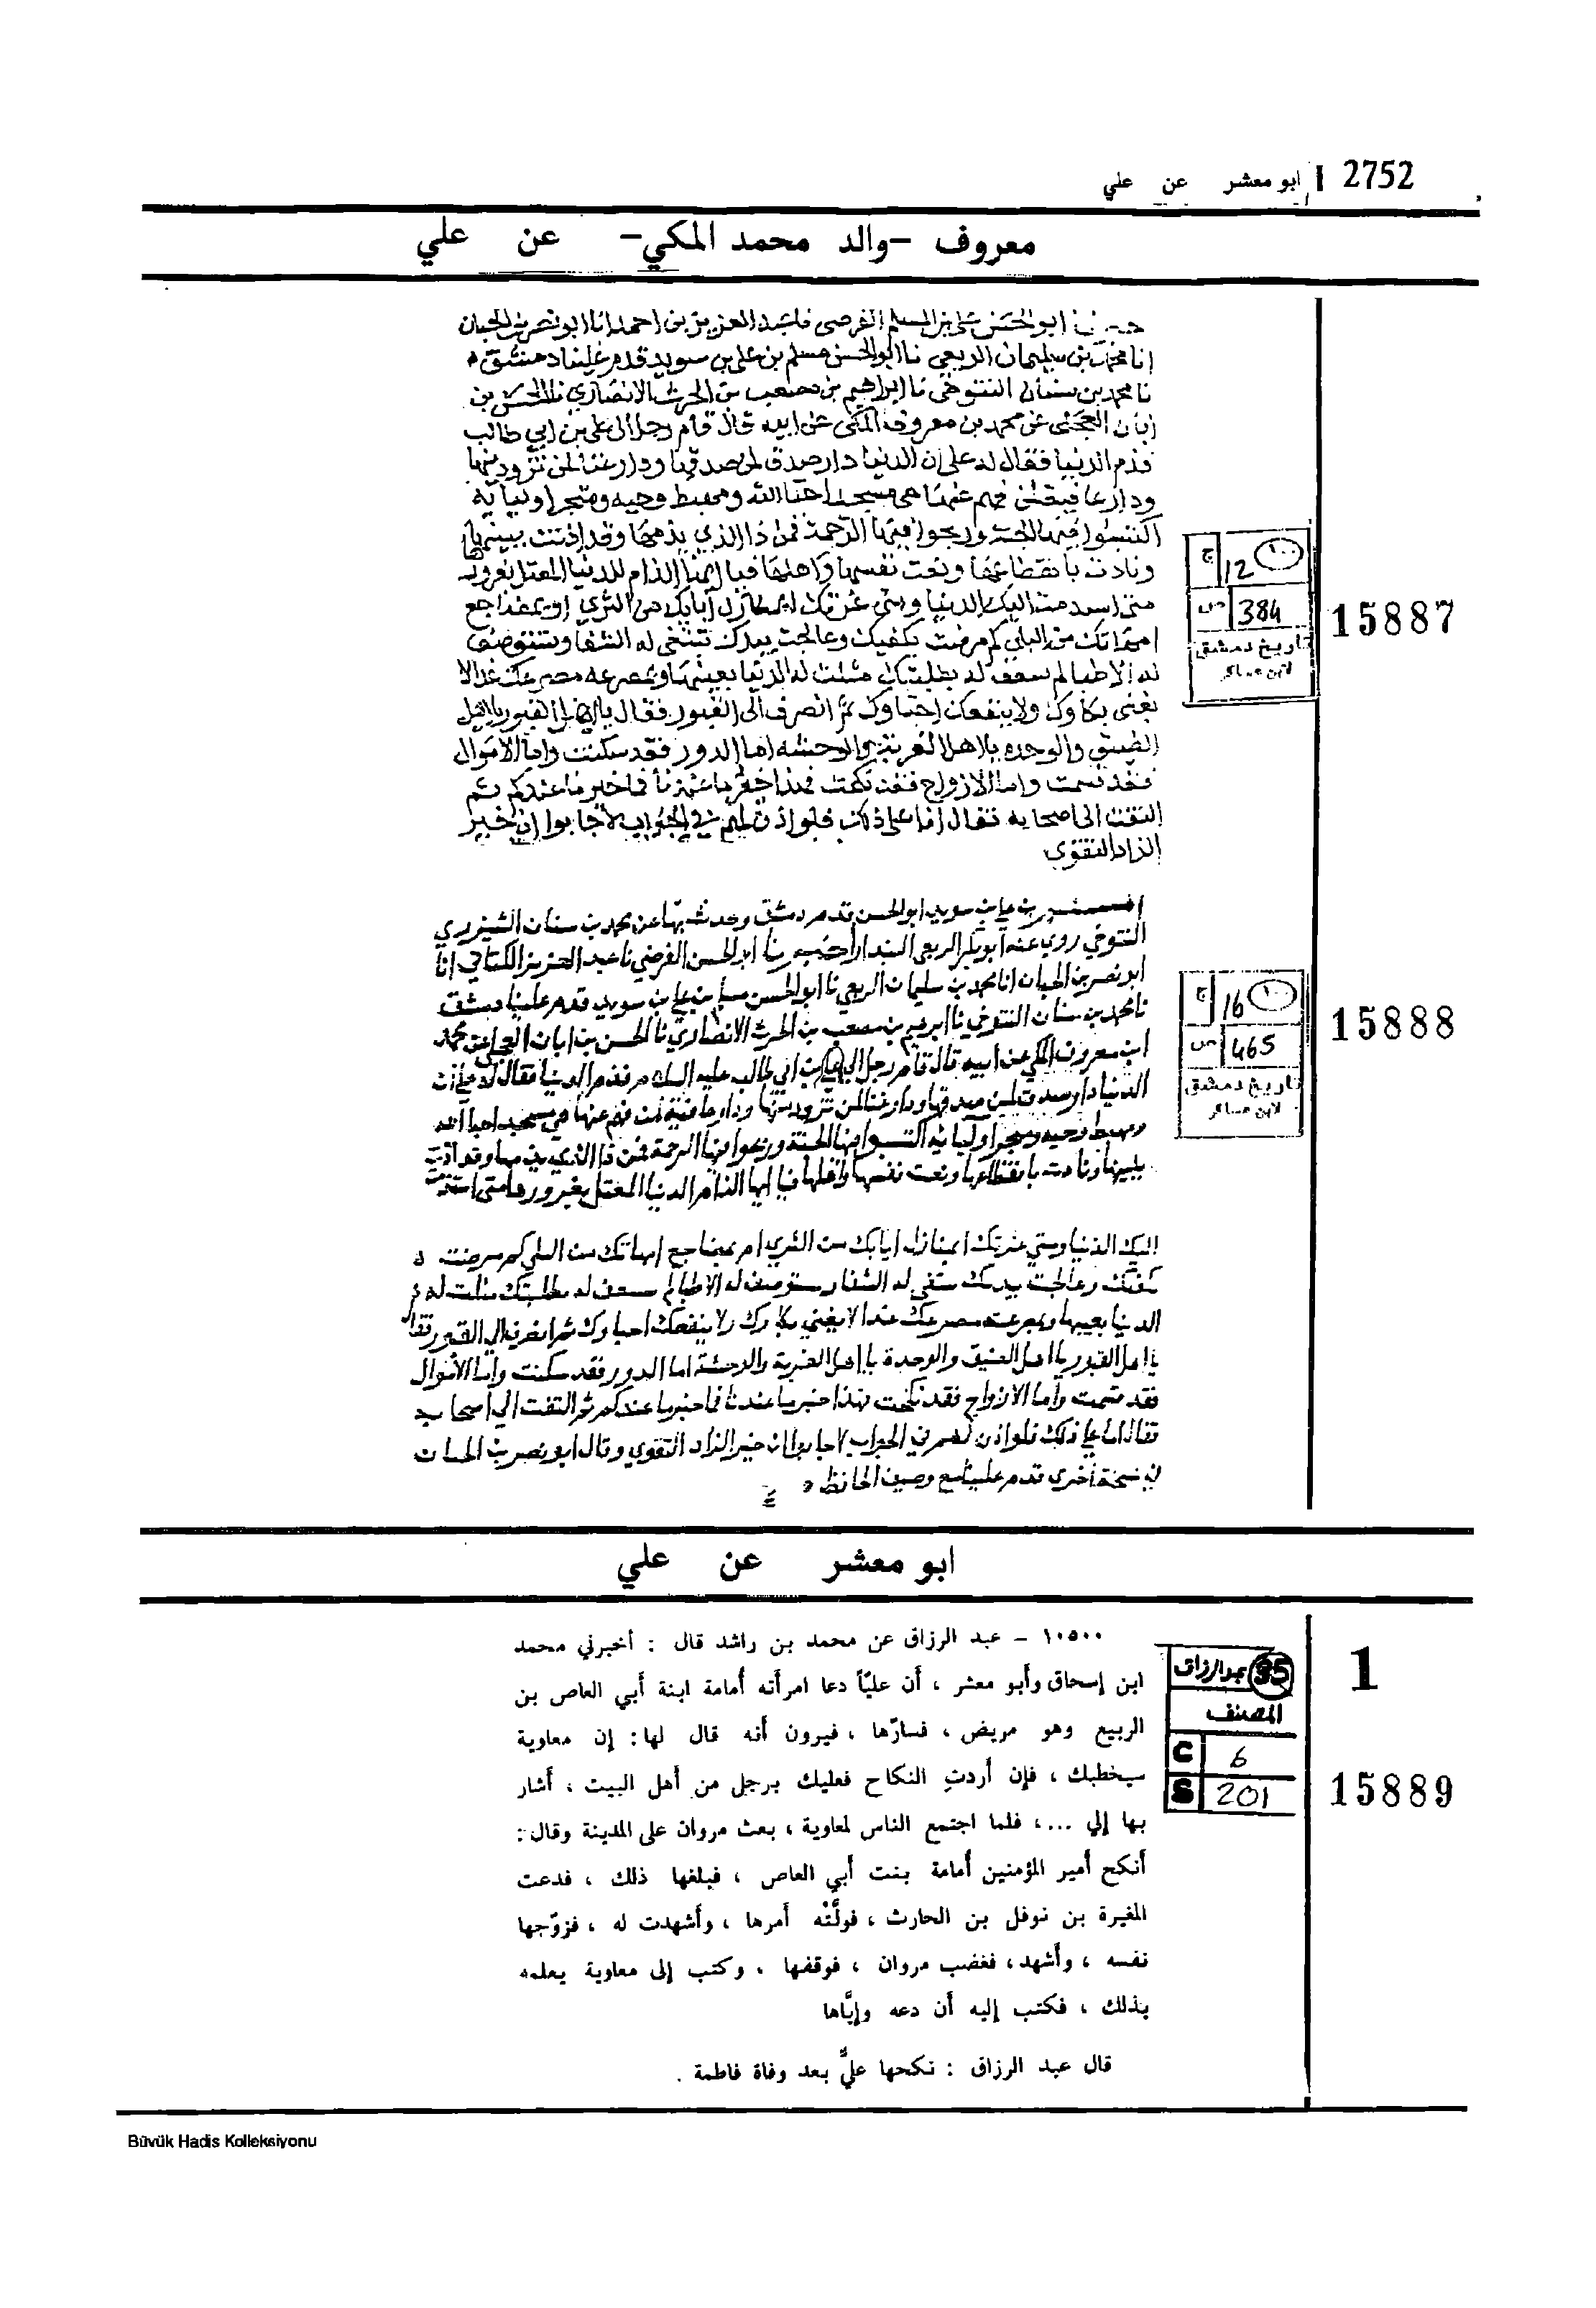 2752 | ابو معشر عن علي
معروف -والد محمد المكي- عن علي
ابو الحسن علي بن المسلم الفرضي العزيز بن احمد انا ابو نصر بن الجبان
انا محمد بن سليمان الربعي نا ابو الحسن مسلم بن علي بن سويد قدم علينا دمشق
نا محمد بن سنان التنوخي نا ابراهيم بن مصعب بن الحرث الانصاري نا الحسن بن
ابان العجلي عن محمد بن معروف المكي عن ابيه قال قام رجل الى علي بن ابي طالب
فذم الدنيا فقال له علي ان الدنيا دار صدق لمن صدقها ودار غنا لمن تزود منها
ودار عافية لمن فهم عنها هي مسجد احبا الله ومهبط وحيه ومتجر اوليايه
اكتسبوا فيها الجنة وربحوا فيها الرحمة فمن ذا الذي يذمها وقد اذنت ببينها
ونادت بانقطاعها ونعت نفسها واهلها فيا ايها الذام للدنيا المعتل بغرورها
متى استذمت اليك الدنيا ومتى غرتك ابمنازل ابايك من الثرى او بمضاجع
امهاتك من البلى كم مرضت بكفيك وعالجت بيدك تبتغي له الشفا وتستوصف
له الاطبا لم تسعف له بطلبتك مثلت له الدنيا بعينها وبمصرعه مصرعك غدا لا
يغني بكاوك ولا ينفعك احباوك ثم انصرف الى القبور فقال يا اهل القبور يا اهل
الضيق والوحده يا اهل الغربة والوحشه اما الدور فقد سكنت واما الاموال
فقد قسمت واما الازواج فقد نكحت فهذا خبر ما عندنا فما خبر ما عندكم ثم
التفت الى اصحابه فقال اما على ذلك فلو اذن لهم في الجواب لاجابوا ان خير
الزاد التقوى
15887
ج 12 ١٠٠
ص 384
تاريخ دمشق
لابن عساكر
بن علي بن سويد ابو الحسن قدم دمشق وحدث بها عن محمد بن سنان الشيزري
التنوخي روى عنه ابو بكر الربعي البندار ابو الحسن الفرضي نا عبد العزيز الكتاني انا
ابو نصر بن الجبان انا محمد بن سليمان الربعي نا ابو الحسن بن علي بن سويد قدم علينا دمشق
نا محمد بن سنان التنوخي نا ابراهيم بن مصعب بن الحرث الانصاري نا الحسن بن ابان العجلي عن محمد
ابن معروف المكي عن ابيه قال قام رجل الى علي بن ابي طالب عليه السلام فذم الدنيا فقال له علي ان
الدنيا دار صدق لمن صدقها ودار غنا لمن تزود منها ودار عافية لمن فهم عنها هي مسجد احبا الله
ومهبط وحيه ومتجر اوليايه اكتسبوا فيها الجنة وربحوا فيها الرحمة فمن ذا الذي يذمها وقد اذنت
ببينها ونادت بانقطاعها ونعت نفسها واهلها فيا ايها الذام الدنيا المعتل بغرورها متى استذمت
اليك الدنيا ومتى غرتك ابمنازل ابايك من الثرى ام بمضاجع امهاتك من البلى كم مرضت
بكفيك وعالجت بيدك تبتغي له الشفا وتستوصف له الاطبا لم تسعف له بطلبتك مثلت له
الدنيا بعينها وبمصرعه مصرعك غدا لا يغني بكاوك ولا ينفعك احباوك ثم انصرف الى القبور فقال
يا اهل القبور يا اهل الضيق والوحدة يا اهل الغربة والوحشة اما الدور فقد سكنت واما الاموال
فقد قسمت واما الازواج فقد نكحت فهذا خبر ما عندنا فما خبر ما عندكم ثم التفت الى اصحابه
فقال اما على ذلك فلو اذن لهم في الجواب لاجابوا ان خير الزاد التقوى وقال ابو نصر بن الجبان
في نسخة اخرى قدم علينا مع وصيف الحافظ
15888
ج 16 ١٠٠
ص 465
تاريخ دمشق
لابن عساكر
ابو معشر عن علي
١٠٥٠٠ - عبد الرزاق عن محمد بن راشد قال : أخبرني محمد
ابن إسحاق وأبو معشر ، أن عليّاً دعا امرأته أمامة ابنة أبي العاص بن
الربيع وهو مريض ، فسارّها ، فيرون أنه قال لها: إن معاوية
سيخطبك ، فإن أردتِ النكاح فعليك برجل من أهل البيت ، أشار
بها إلي ...، فلما اجتمع الناس لمعاوية ، بعث مروان على المدينة وقال:
أنكح أمير المؤمنين أمامة بنت أبي العاص ، فبلغها ذلك ، فدعت
المغيرة بن نوفل بن الحارث ، فولَّتْه أمرها ، وأشهدت له ، فزوّجها
نفسه ، وأشهد، فغضب مروان ، فوقفها ، وكتب إلى معاوية يعلمه
بذلك ، فكتب إليه أن دعه وإيَّاها
قال عبد الرزاق : نكحها عليٌّ بعد وفاة فاطمة .
1
عبد الرزاق 95
المصنف
C 6
S 201
15889
Büyük Hadis Kolleksiyonu